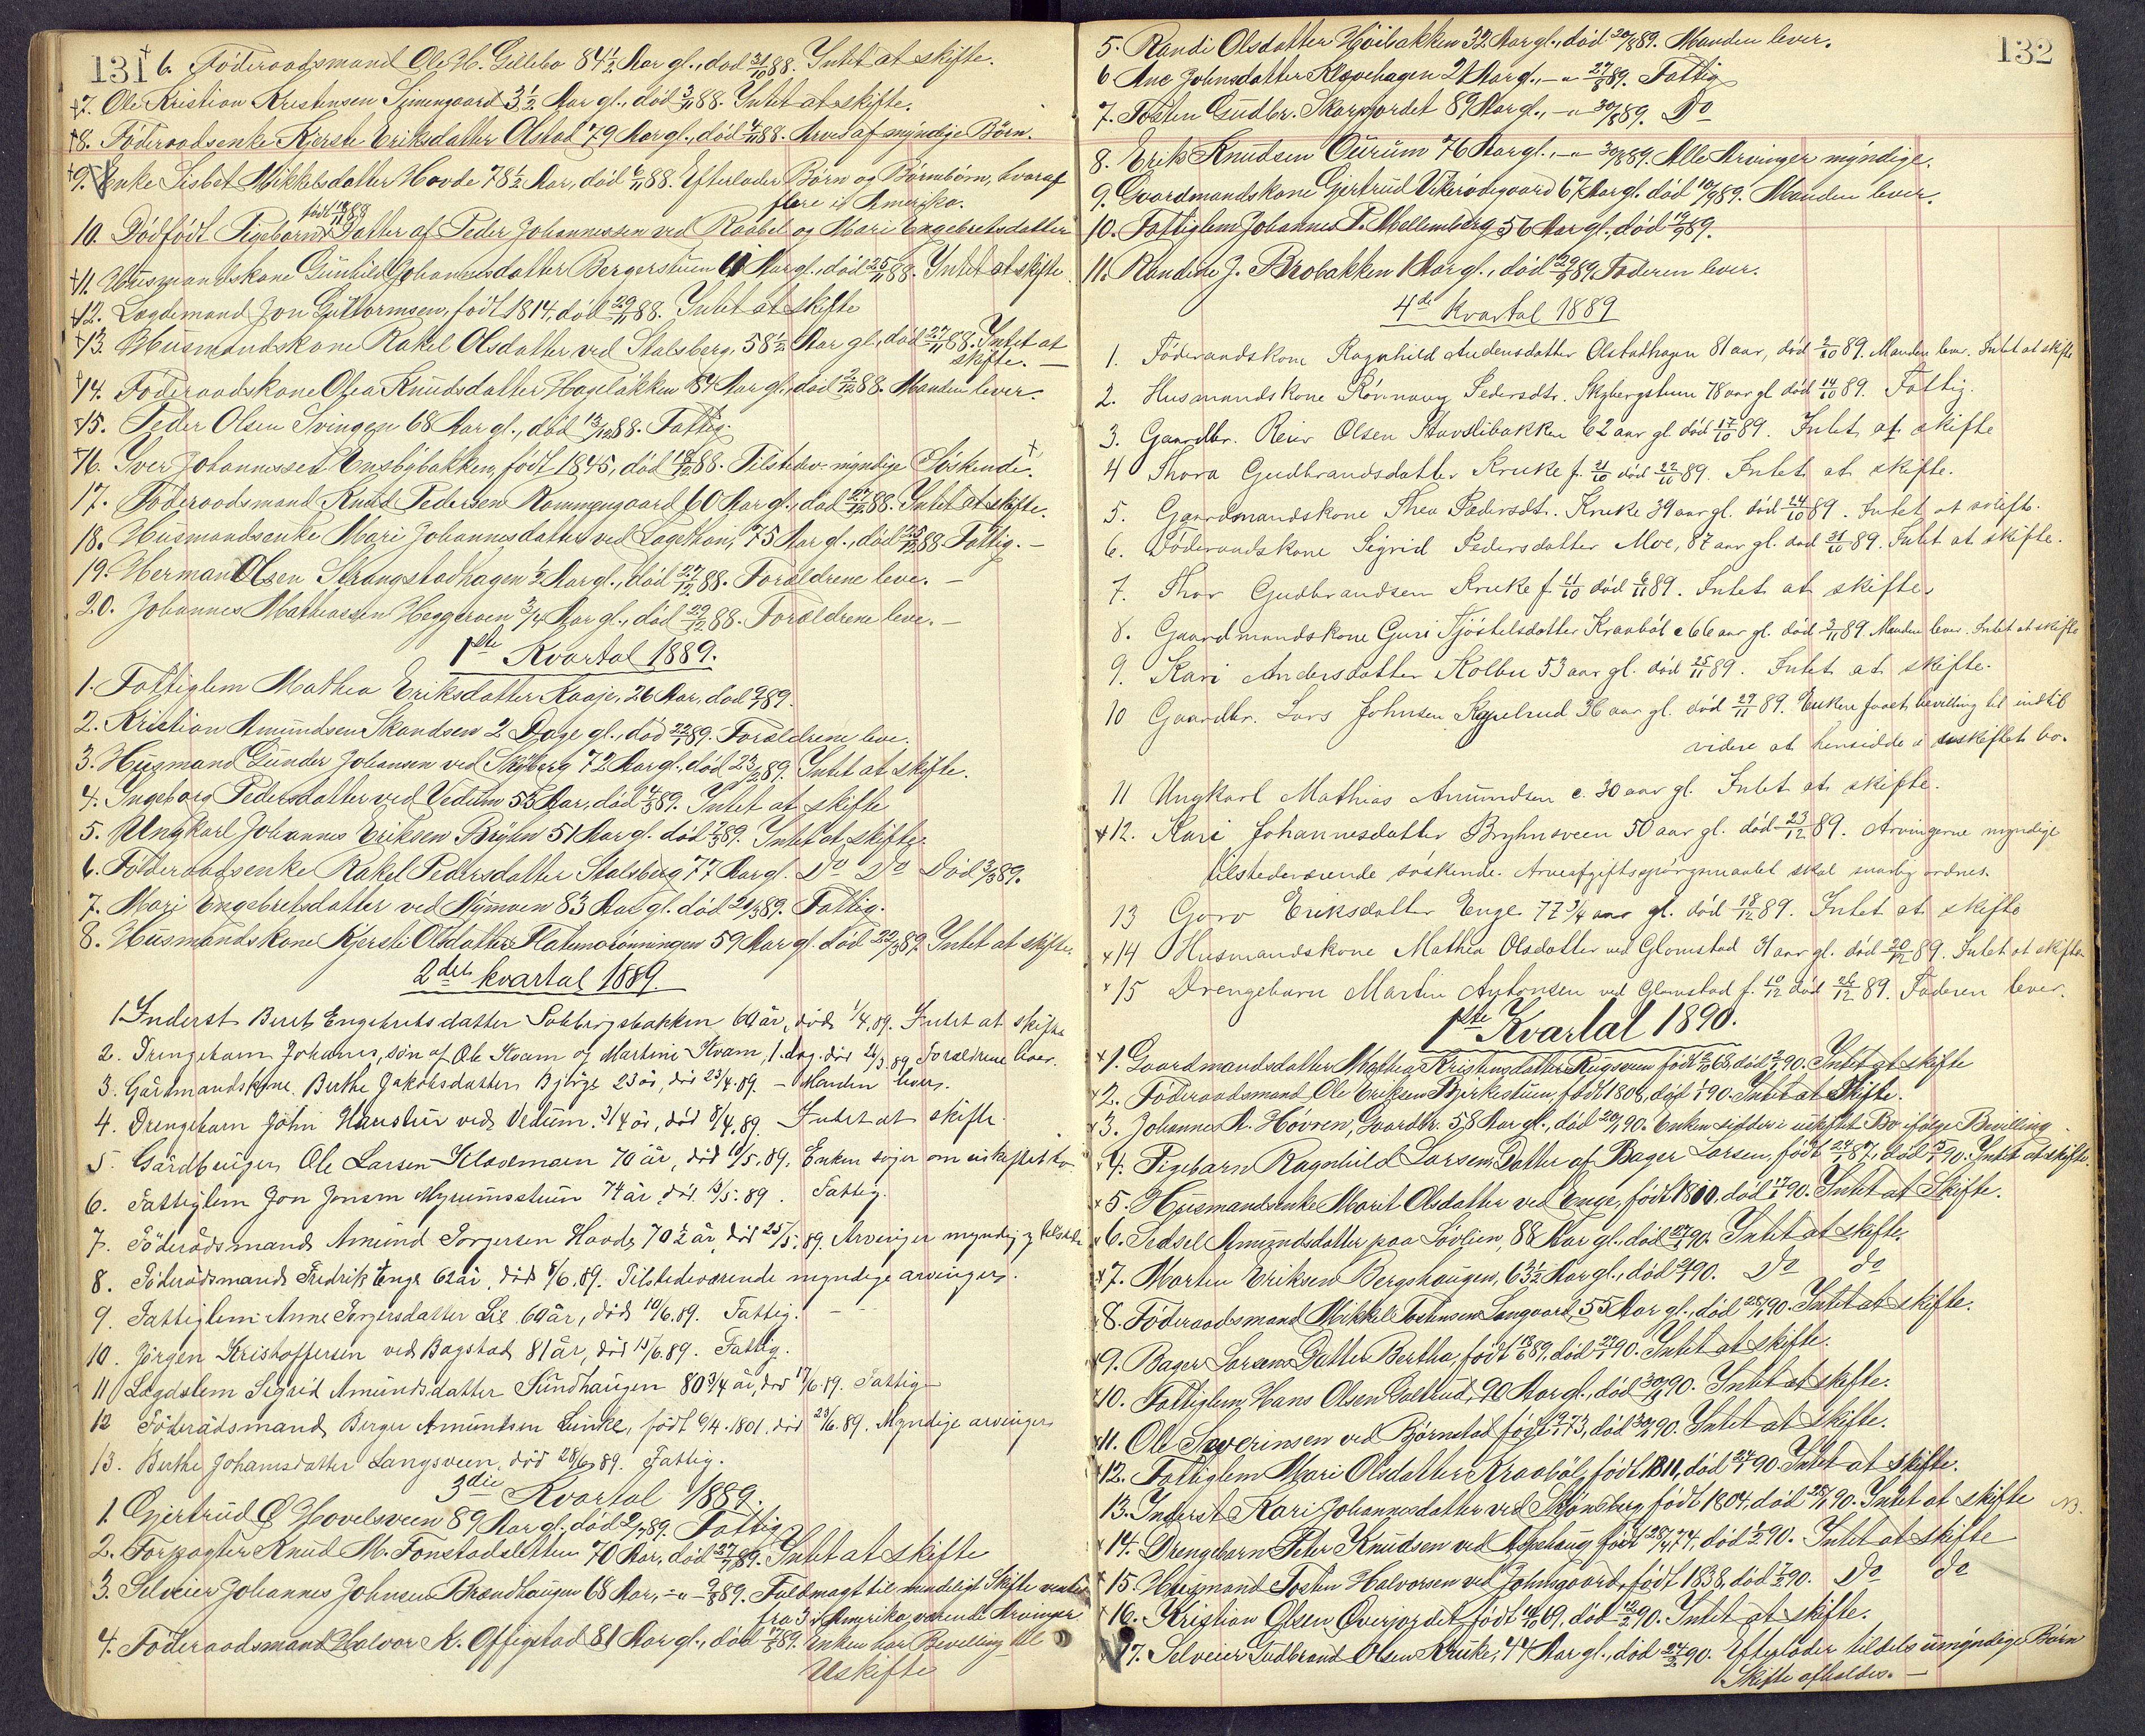 131
6. Föderaadsmand Ole H. Gillebo 84½ Aar gl., död 31/10 88. Intet at skifte.
7. Ole Kristian Kristensen Simengaard 3½ Aar gl., död 3/11 88. Intet at skifte.
8. Föderaadsenke Kjersti Eriksdatter Olstad 79 Aar gl., död 4/11 88. Arves af myndige Börn.
9. Enke Lisbet Mikkelsdatter Hovde 78½ Aar, död 6/11 88. Efterlader Börn og Börnbörn, hvoraf
flere i Amerika.
10. Dödfödt Pigebarn födt 18/11 88 Datter af Peder Johannessen ved Raaböl og Mari Engebretsdatter
11. Husmandskone Gunhild Johannesdatter Bergerstuen Aar gl., död 25/11 88. Intet at skifte.
12. Lægdemand Jon Guttormsen, födt 1814, död 29/11 88. Intet at skifte
13. Husmandskone Rakel Olsdatter ved Stalsberg, 58½ Aar gl., död 27/11 88. Intet at
skifte. —
14. Föderaadskone Olea Knudsdatter Hagelökken 84 Aar gl., död 2/12 88. Manden lever.
15. Peder Olsen Svingen 68 Aar gl., död 13/12 88. Fattig.
16. Iver Johannessen Ensbybakken, födt 1845, död 18/12 88. Tilstedev. myndige Söskende.
17. Föderaadsmand Knud Pedersen Rommengaard 60 Aar gl., död 27/12 88. Intet at skifte.
18. Husmandsenke Mari Johannesdatter ved 75 Aar gl., död 25/12 88. Fattig. —
19. Herman Olsen Strangstadhagen ½ Aar gl., död 27/12 88. Forældrene leve. —
20. Johannes Mathiassen Heggeroen 3/4 Aar gl., död 29/12 88. Forældrene leve. —
1ste Kvartal 1889.
1. Fattiglem Mathea Eriksdatter Kaaje, 26 Aar, död 9/1 89.
2. Kristian Amundsen Skandsen 2 Dage gl., död 22/1 89. Forældrene leve.
3. Husmand Gunder Johansen ved Skyberg 72 Aar gl., död 23/2 89. Intet at skifte.
4. Ingeborg Pedersdatter ved Vedum 53 Aar, död 4/3 89. Intet at skifte
5. Ungkarl Johannes Eriksen Bryhn 51 Aar gl. död 7/3 89. Intet at skifte
6. Föderaadsenke Rakel Pedersdatter Stalsberg 77 Aar gl. Do Do Död 3/3 89.
7. Mari Engebretsdatter ved Nymoen 83 Aar gl. död 21/3 89. Fattig.
8. Husmandskone Kjersti Olsdatter Flatmorönningen 59 Aar gl. död 22/3 89. Intet at skifte.
2det kvartal 1889.
1 Inderst Berit Engebretsdatter Solbergsbakken 69 år, död 1/4 89. Intet at skifte
2. Drengebarn Johannes, sön af Ole Kvam og Martine Kvam, 1. dag. död 21/3 89 Forældrene lever.
3. Gårdmandskone Berthe Jakobsdatter Björge 23 år, död 23/4.89 – Manden lever.
4. Drengebarn John Haustur ved Vedum. 3/4 år, död 8/4.89. Intet at skifte.
5. Gårdbruger Ole Larsen Klovemoen 70 år, död 10/5.89. Enken söger om uskiftet bo.
6. Fattiglem Jon Jensen Myrumsstuen 74 år, död 15/5.89. Fattig.
7. Föderådsmand Amund Torgersen Hovde, 70½ år, död 25/5.89. Arvinger myndig og tilstede
8. Föderådsmand Fredrik Enge 62 år, död 8/6.89. Tilstedeværende myndige arvinger.
9. Fattiglem Anne Torgersdatter Lie 69 år, död 10/6.89. Fattig.
10. Jörgen Kristoffersen ved Bagstad 81 år, död 15/6.89. Fattig.
11 Lægdslem Sigrid Amundsdatter Sundhaugen 80 3/4 år, död 17/6.89. Fattig
12 Föderådsmand Berger Amundsen Lunke, födt 6/4.1801, död 23/6.89. Myndige arvinger
13. Berthe Johannesdatter Langsveen, död 28/6 89. Fattig.
3die Kvartal 1889.
1. Gjertrud O. Hovelsveen 89 Aar gl. död 2/7 89. Fattig
2. Forpagter Knud M. Fonstadsletten 70 Aar, död 27/7 89. Intet at skifte
3. Selveier Johannes Johnsen Brandhaugen 68 Aar, – " – 9/8 89. Fuldmagt til mindeligt Skifte ventes
fra 3 i Amerika værende Arvinger
4. Föderaadsmand Halvor K. Offigstad 81 Aar gl., död 17/8 89. Enken har Bevilling til
Uskifte
132
5. Randi Olsdatter Höibakken 32 Aar gl., död 20/8 89. Manden lever.
6 Ane Johnsdatter Klovehagen 21 Aar gl., – " – 27/8 89. Fattig
7. Tosten Gudbr. Skarpjordet 89 Aar gl., – " – 30/8 89. Do
8. Erik Knudsen Ourum 76 Aar gl., – " – 30/8 89. Alle Arvinger myndige.
9. Gaardmandskone Gjertrud Vikerödegaard 67 Aar gl. död 10/9 89. Manden lever.
10. Fattiglem Johannes P. Mellemberg 56 Aar gl., död 19/9 89.
11. Randine J. Brobakken 1 Aar gl., död 29/9 89. Faderen lever.
4de Kvartal 1889
1. Föderaadskone Ragnhild Audensdatter Olstadhagen 81 aar, död 2/10 89. Manden lever. Intet at skifte
2. Husmandskone Rönnaug Pedersdtr. Skybergstuen 78 aar gl död 14/10 89. Fattig.
3. Gaardbr. Reier Olsen Stavslibakken 62 aar gl död 17/10 89. Intet at skifte
4 Thora Gudbrandsdatter Kruke f. 21/10 död 22/10 89. Intet at skifte.
5. Gaardmandskone Thea Pedersdt. Kruke 39 aar gl. död 24/10 89. Intet at skifte.
6. Föderaadskone Sigrid Pedersdatter Moe, 87 aar gl. död 31/10 89. Intet at skifte.
7. Thor Gudbrandsen Kruke f. 21/10 död 6/11 89. Intet at skifte.
8. Gaardmandskone Guri Tjöstelsdatter Kraaböl c 66 aar gl. död 3/11 89. Manden lever. Intet at skifte
9. Kari Andersdatter Kolbu 53 aar gl. död 25/11 89. Intet at skifte.
10 Gaardbr. Lars Johnsen Kapelrud 36 aar gl. död 29/11 89. Enken faaet bevilling til indtil
videre at hensidde i uskiftet bo.
11 Ungkarl Mathias Amundsen c. 30 aar gl. Intet at skifte.
12. Kari Johannesdatter Bryhnsveen 50 aar gl. död 23/12 89. Arvingerne myndige
tilstedeværende söskende. Arveafgiftsspörgsmaalet skal snarlig ordnes.
13 Goro Eriksdatter Enge 77 3/4 aar gl. död 18/12 89. Intet at skifte
14 Husmandskone Mathea Olsdatter ved Glomstad 31 aar gl. död 20/12 89. Intet at skifte
15 Drengebarn Martin Antonsen ved Glomstad f. 10/12 död 26/12 89. Faderen lever.
1ste Kvartal 1890.
1. Gaardmandsdatter Mathea Kristensdatter Rugsveen födt 2/10 68, död 2/1 90. Intet at skifte
2. Föderaadsmand Ole Eriksen Birkestuen, födt 1808, död 1/1 90. Intet at Skifte.
3. Johannes A. Hovren, Gaardbr. 58 Aar gl., död 20/1 90. Enken sidder i uskiftet Bo ifölge Bevilling.
4. Pigebarn Ragnhild Larsen, Datter af Bager Larsen, födt 24/1 87, död 15/1 90. Intet at skifte.
5. Husmandsenke Marit Olsdatter ved Enge, födt 1810, död 17/1 90. Intet at Skifte.
6. Sedsel Amundsdatter paa Lövlien, 88 Aar gl., död 27/1 90. Intet at skifte.
7. Morten Eriksen Bergshaugen, 63½ Aar gl., död 21/1 90. Do do
8. Föderaadsmand Mikkel Tostensen Langaard, 55 Aar gl., död 25/1 90. Intet at skifte.
9. Bager Larsens Datter Bertha, födt 18/6 89, död 23/1 90. Intet at skifte.
10. Fattiglem Hans Olsen Galtrud, 90 Aar gl., död 30/1 90. Intet at skifte.
11. Ole Severinsen ved Björnstad födt 9/2 73, död 30/1 90. Intet at skifte.
12. Fattiglem Mari Olsdatter Kraaböl, födt 1811, död 24/1 90. Intet at skifte.
13. Inderst Kari Johannesdatter ved Skönsberg födt 1804, död 25/1 90. Intet at skifte NB.
14. Drengebarn Peter Knudsen ved Aspehaug födt 28/4 74, död 1/2 90. Intet at skifte
15. Husmand Tosten Halvorsen ved Johnsgaard, födt 1838, död 7/2 90. Do do
16. Kristian Olsen Överjordet, födt 14/10 69, död 12/2 90. Intet at skifte.
17. Selveier Gudbrand Olsen Kruke, 44 Aar gl., död 24/2 90. Efterlader tildels umyndige Börn
Skifte afholdes. —